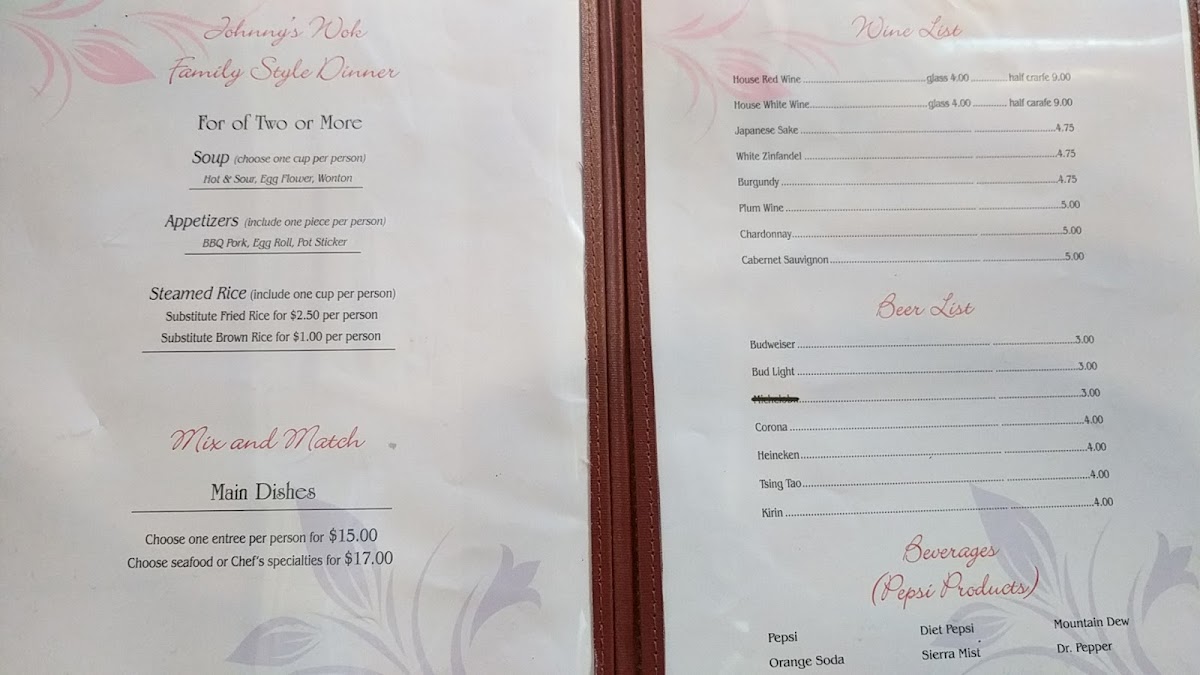 Johnny's Wok
Family Style Dinner
For of Two or More
Soup (choose one cup per person)
Hot & Sour, Egg Flower, Wonton
Appetizers (include one piece per person)
BBQ Pork, Egg Roll, Pot Sticker
Steamed Rice (include one cup per person)
Substitute Fried Rice for $2.50 per person
Substitute Brown Rice for $1.00 per person
Mix and Match
Main Dishes
Choose one entree per person for $15.00
Choose seafood or Chef's specialties for $17.00
Wine List
House Red Wine glass 4.00 half crarfe 9.00
House White Wine glass 4.00 half carafe 9.00
Japanese Sake 4.75
White Zinfandel 4.75
Burgundy 4.75
Plum Wine 5.00
Chardonnay 5.00
Cabernet Sauvignon 5.00
Beer List
Budweiser 3.00
Bud Light 3.00
3.00
Corona 4.00
Heineken 4.00
Tsing Tao 4.00
Kirin 4.00
Beverages
(Pepsi Products)
Pepsi Diet Pepsi Mountain Dew
Orange Soda Sierra Mist Dr. Pepper